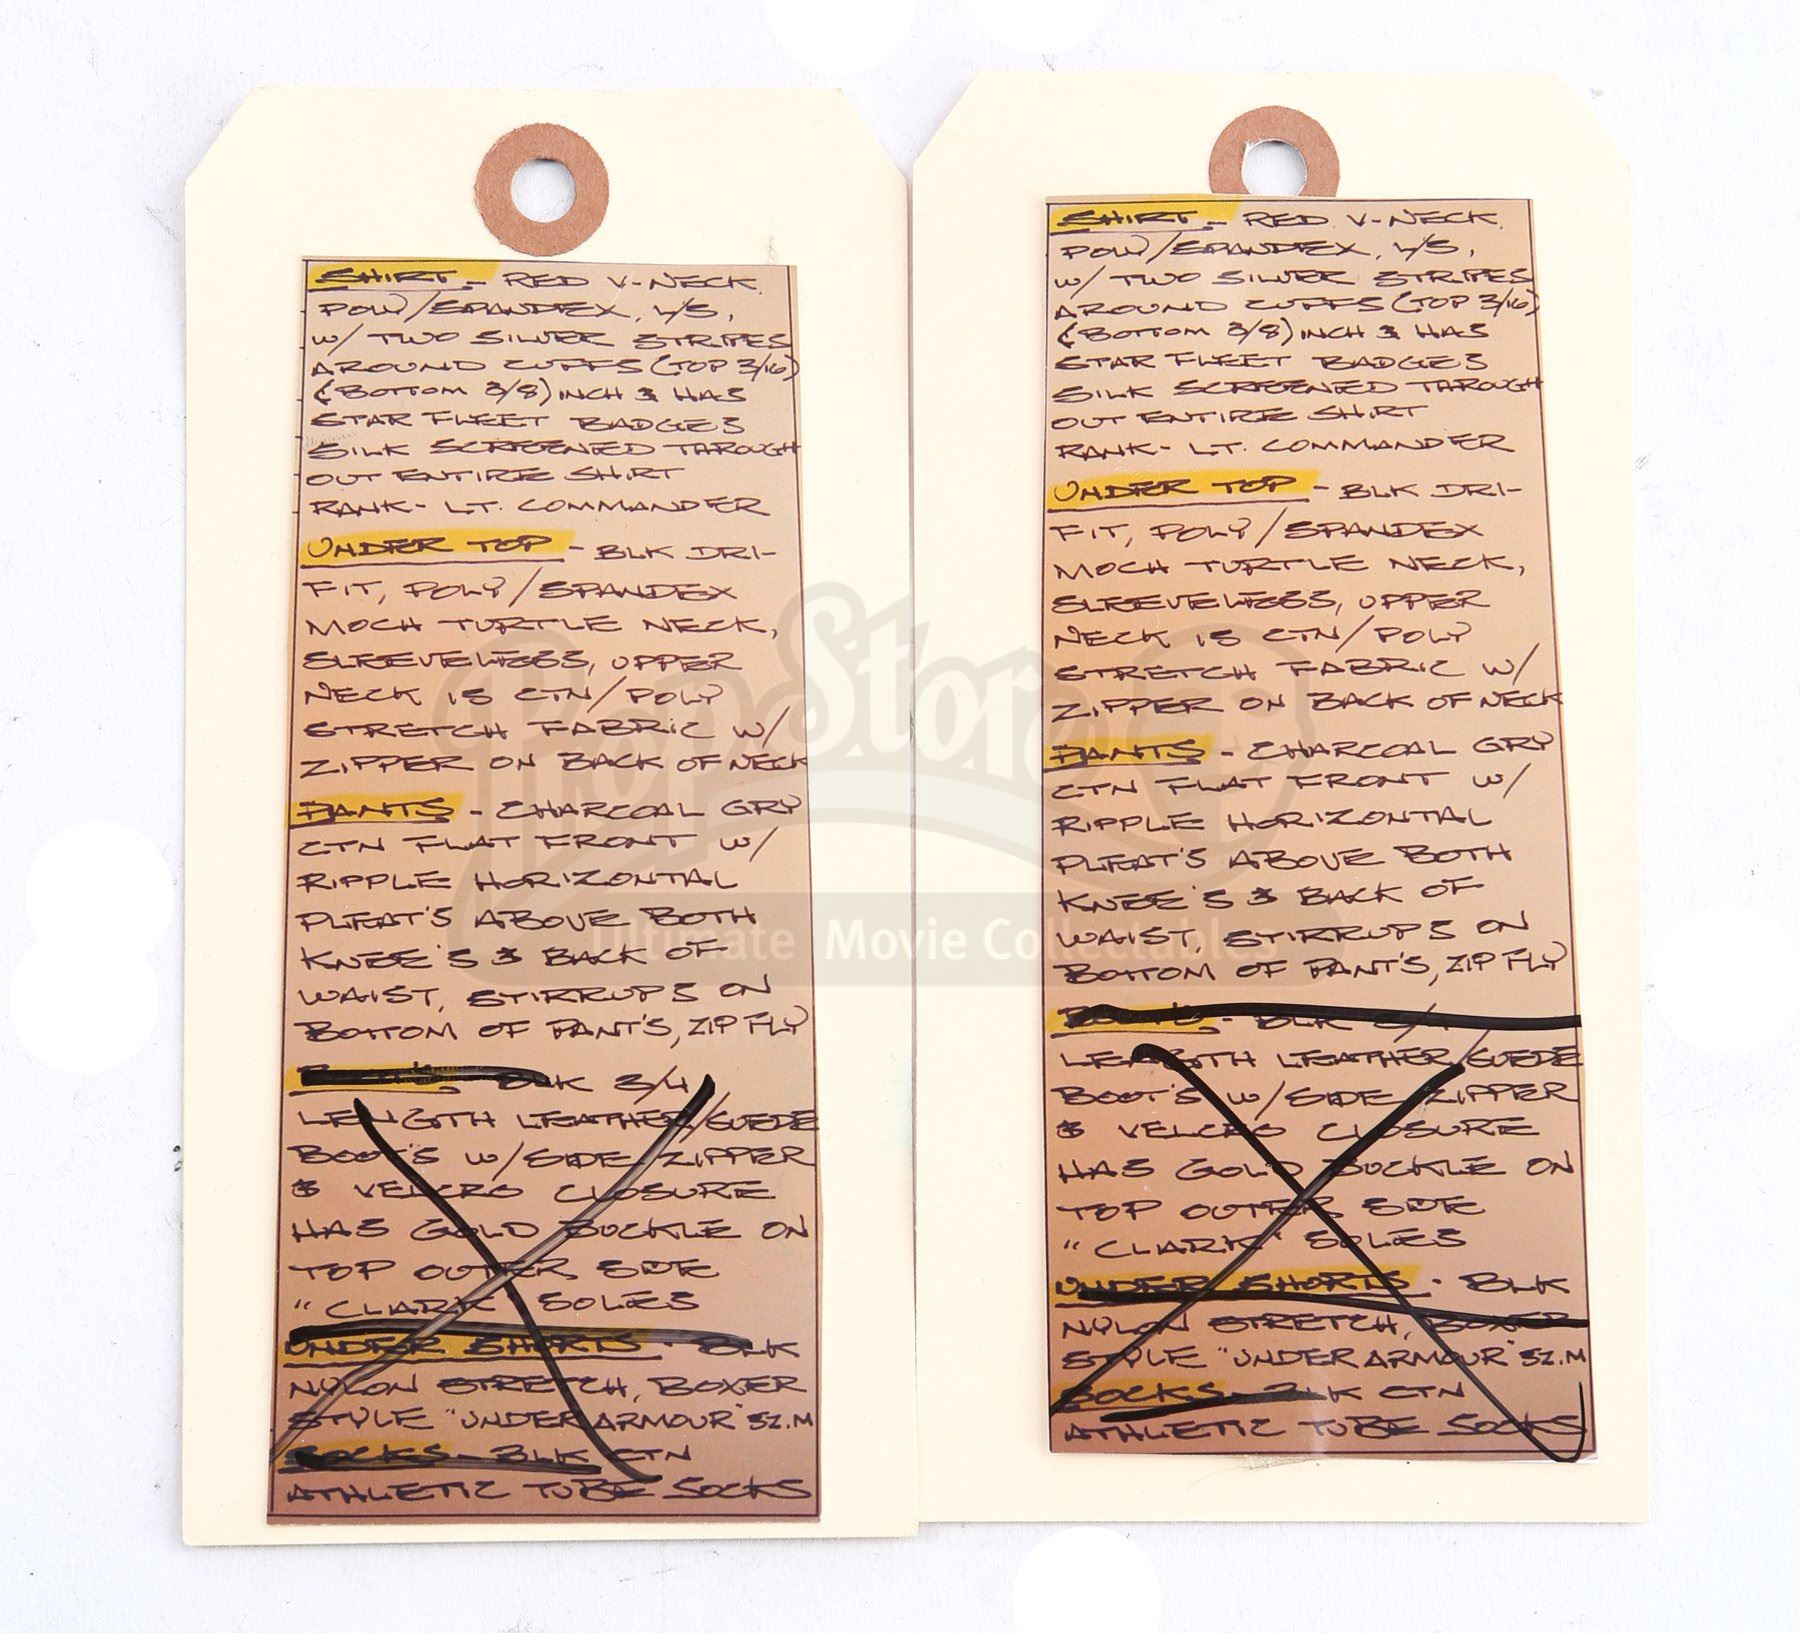 SHIRT - RED V-NECK,
POLY/SPANDEX, L/S,
W/ TWO SILVER STRIPES
AROUND CUFFS (TOP 3/16)
(& BOTTOM 3/8) INCH & HAS
STAR FLEET BADGES
SILK SCREENED THROUGH
OUT ENTIRE SHIRT
RANK- LT. COMMANDER
UNDER TOP - BLK DRI-
FIT, POLY/SPANDEX
MOCH TURTLE NECK,
SLEEVELESS, UPPER
NECK IS CTN/POLY
STRETCH FABRIC W/
ZIPPER ON BACK OF NECK
PANTS - CHARCOAL GRY
CTN FLAT FRONT W/
RIPPLE HORIZONTAL
PLEAT'S ABOVE BOTH
KNEE'S & BACK OF
WAIST, STIRRUPS ON
BOTTOM OF PANT'S, ZIP FLY
BOOTS - BLK 3/4
LENGTH LEATHER/SUEDE
BOOT'S W/SIDE ZIPPER
& VELCRO CLOSURE
HAS GOLD BUCKLE ON
TOP OUTER SIDE
"CLARK" SOLES
UNDER SHORTS - BLK
NYLON STRETCH, BOXER
STYLE "UNDER ARMOUR" SZ.M
SOCKS - BLK CTN
ATHLETIC TUBE SOCKS
SHIRT - RED V-NECK,
POLY/SPANDEX, L/S,
W/ TWO SILVER STRIPES
AROUND CUFFS (TOP 3/16)
(& BOTTOM 3/8) INCH & HAS
STAR FLEET BADGES
SILK SCREENED THROUGH
OUT ENTIRE SHIRT
RANK- LT. COMMANDER
UNDER TOP - BLK DRI-
FIT, POLY/SPANDEX
MOCH TURTLE NECK,
SLEEVELESS, UPPER
NECK IS CTN/POLY
STRETCH FABRIC W/
ZIPPER ON BACK OF NECK
PANTS - CHARCOAL GRY
CTN FLAT FRONT W/
RIPPLE HORIZONTAL
PLEAT'S ABOVE BOTH
KNEE'S & BACK OF
WAIST, STIRRUPS ON
BOTTOM OF PANT'S, ZIP FLY
BOOTS - BLK 3/4
LENGTH LEATHER/SUEDE
BOOT'S W/SIDE ZIPPER
& VELCRO CLOSURE
HAS GOLD BUCKLE ON
TOP OUTER SIDE
"CLARK" SOLES
UNDER SHORTS - BLK
NYLON STRETCH, BOXER
STYLE "UNDER ARMOUR" SZ.M
SOCKS - BLK CTN
ATHLETIC TUBE SOCKS
PropStore
Ultimate Movie Collectables